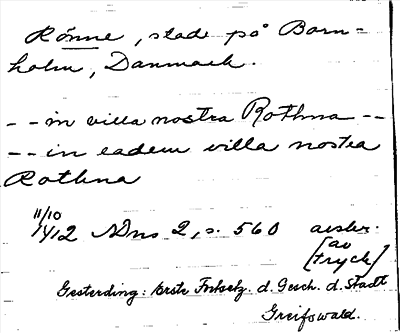 Rönne, stad på Born-
holm, Danmark.
-- in villa nostra Rothna --
-- in eadem villa nostra
Rothna
11/10
1412 NDns 2, s. 560 avskr.
[av
tryck]
Gesterding: Erste Fortsetz. d. Gesch. d. Stadt
Greifswald.